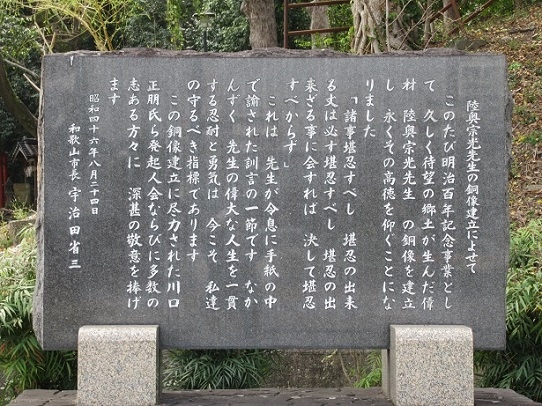 陸奥宗光先生の銅像建立によせて
このたび明治百年記念事業とし
て 久しく待望の郷土が生んだ偉
材 陸奥宗光先生 の銅像を建立
し 永くその高徳を仰ぐことにな
りました
「諸事堪忍すべし 堪忍の出来
る丈は必す堪忍すべし 堪忍の出
来ざる事に会すれば 決して堪忍
すべからず」
これは 先生が令息に手紙の中
で諭された訓言の一節です なか
んずく 先生の偉大な人生を一貫
する忍耐と勇気は 今こそ 私達
の守るべき指標であります
この銅像建立に尽力された川口
正朋氏ら発起人会ならびに多数の
志ある方々に 深甚の敬意を捧げ
ます
昭和四十六年八月二十四日
和歌山市長 宇治田省三